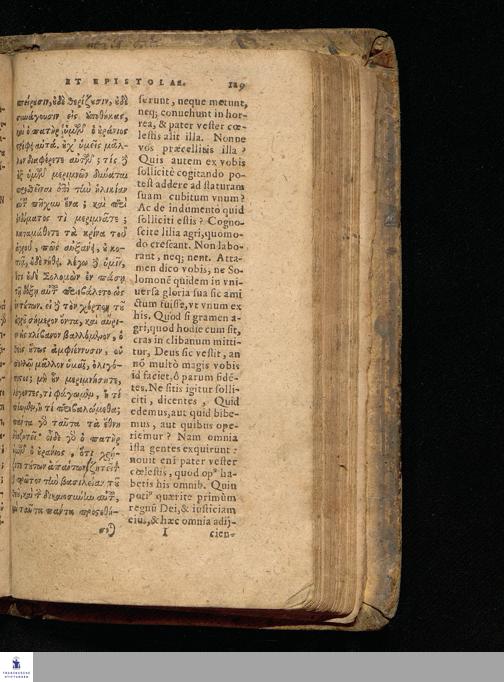 ET EPISTOLAE. 129
σπείρουσιν, οὐδὲ θερίζουσιν, οὐδὲ
συνάγουσιν εἰς ἀποθήκας,
καὶ ὁ πατὴρ ὑμῶν ὁ οὐράνιος
τρέφει αὐτά. οὐχ ὑμεῖς μᾶλ-
λον διαφέρετε αὐτῶν; τίς δὲ
ἐξ ὑμῶν μεριμνῶν δύναται
προσθεῖναι ἐπὶ τὴν ἡλικίαν
αὐτοῦ πῆχυν ἕνα; καὶ περὶ
ἐνδύματος τί μεριμνᾶτε;
καταμάθετε τὰ κρίνα τοῦ
ἀγροῦ, πῶς αὐξάνει, οὐ κο-
πιᾷ, οὐδὲ νήθει, λέγω δὲ ὑμῖν,
ὅτι οὐδὲ Σολομὼν ἐν πάσῃ
τῇ δόξῃ αὐτοῦ περιεβάλετο ὡς
ἓν τούτων. εἰ δὲ τὸν χόρτον τοῦ
ἀγροῦ σήμερον ὄντα, καὶ αὔρι-
ον εἰς κλίβανον βαλλόμενον, ὁ
θεὸς οὕτως ἀμφιέννυσιν, οὐ
πολλῷ μᾶλλον ὑμᾶς, ὀλιγό-
πιστοι; μὴ οὖν μεριμνήσητε,
λέγοντες, τί φάγωμεν, ἢ τί
πίωμεν, ἢ τί περιβαλώμεθα;
πάντα γὰρ ταῦτα τὰ ἔθνη
ἐπιζητεῖ· οἶδε γὰρ ὁ πατὴρ
ὑμῶν ὁ οὐράνιος, ὅτι χρῄ-
ζετε τούτων ἁπάντων, ζητεῖτε δὲ
πρῶτον τὴν βασιλείαν τοῦ
θεοῦ, καὶ τὴν δικαιοσύνην αὐτοῦ,
καὶ ταῦτα πάντα προστεθή-
σεται
serunt, neque metunt,
neq; conuehunt in hor-
rea, & pater vester cœ-
lestis alit illa. Nonne
vos præcellitis illa?
Quis autem ex vobis
sollicitè cogitando po-
test addere ad staturam
suam cubitum vnum?
Ac de indumento quid
solliciti estis? Cogno-
scite lilia agri, quomo-
do crescant. Non labo-
rant, neq; nent. Atta-
men dico vobis, ne So-
lomonē quidem in vni-
uersa gloria sua sic ami
ctum fuisse, vt vnum ex
his. Quòd si gramen a-
gri, quod hodie cum sit,
cras in clibanum mitti-
tur, Deus sic vestit, an
nō multò magis vobis
id faciet, ô parum fidē-
tes. Ne sitis igitur solli-
citi, dicentes, Quid
edemus, aut quid bibe-
mus, aut quibus ope-
riemur? Nam omnia
ista gentes exquirunt:
nouit eni pater vester
cœlestis, quod opꝰ ha-
betis his omnib. Quin
potiꝰ quærite primùm
regnū Dei, & iusticiam
eius, & hæc omnia adij-
I cien-
FRANCKESCHE
STIFTUNGEN